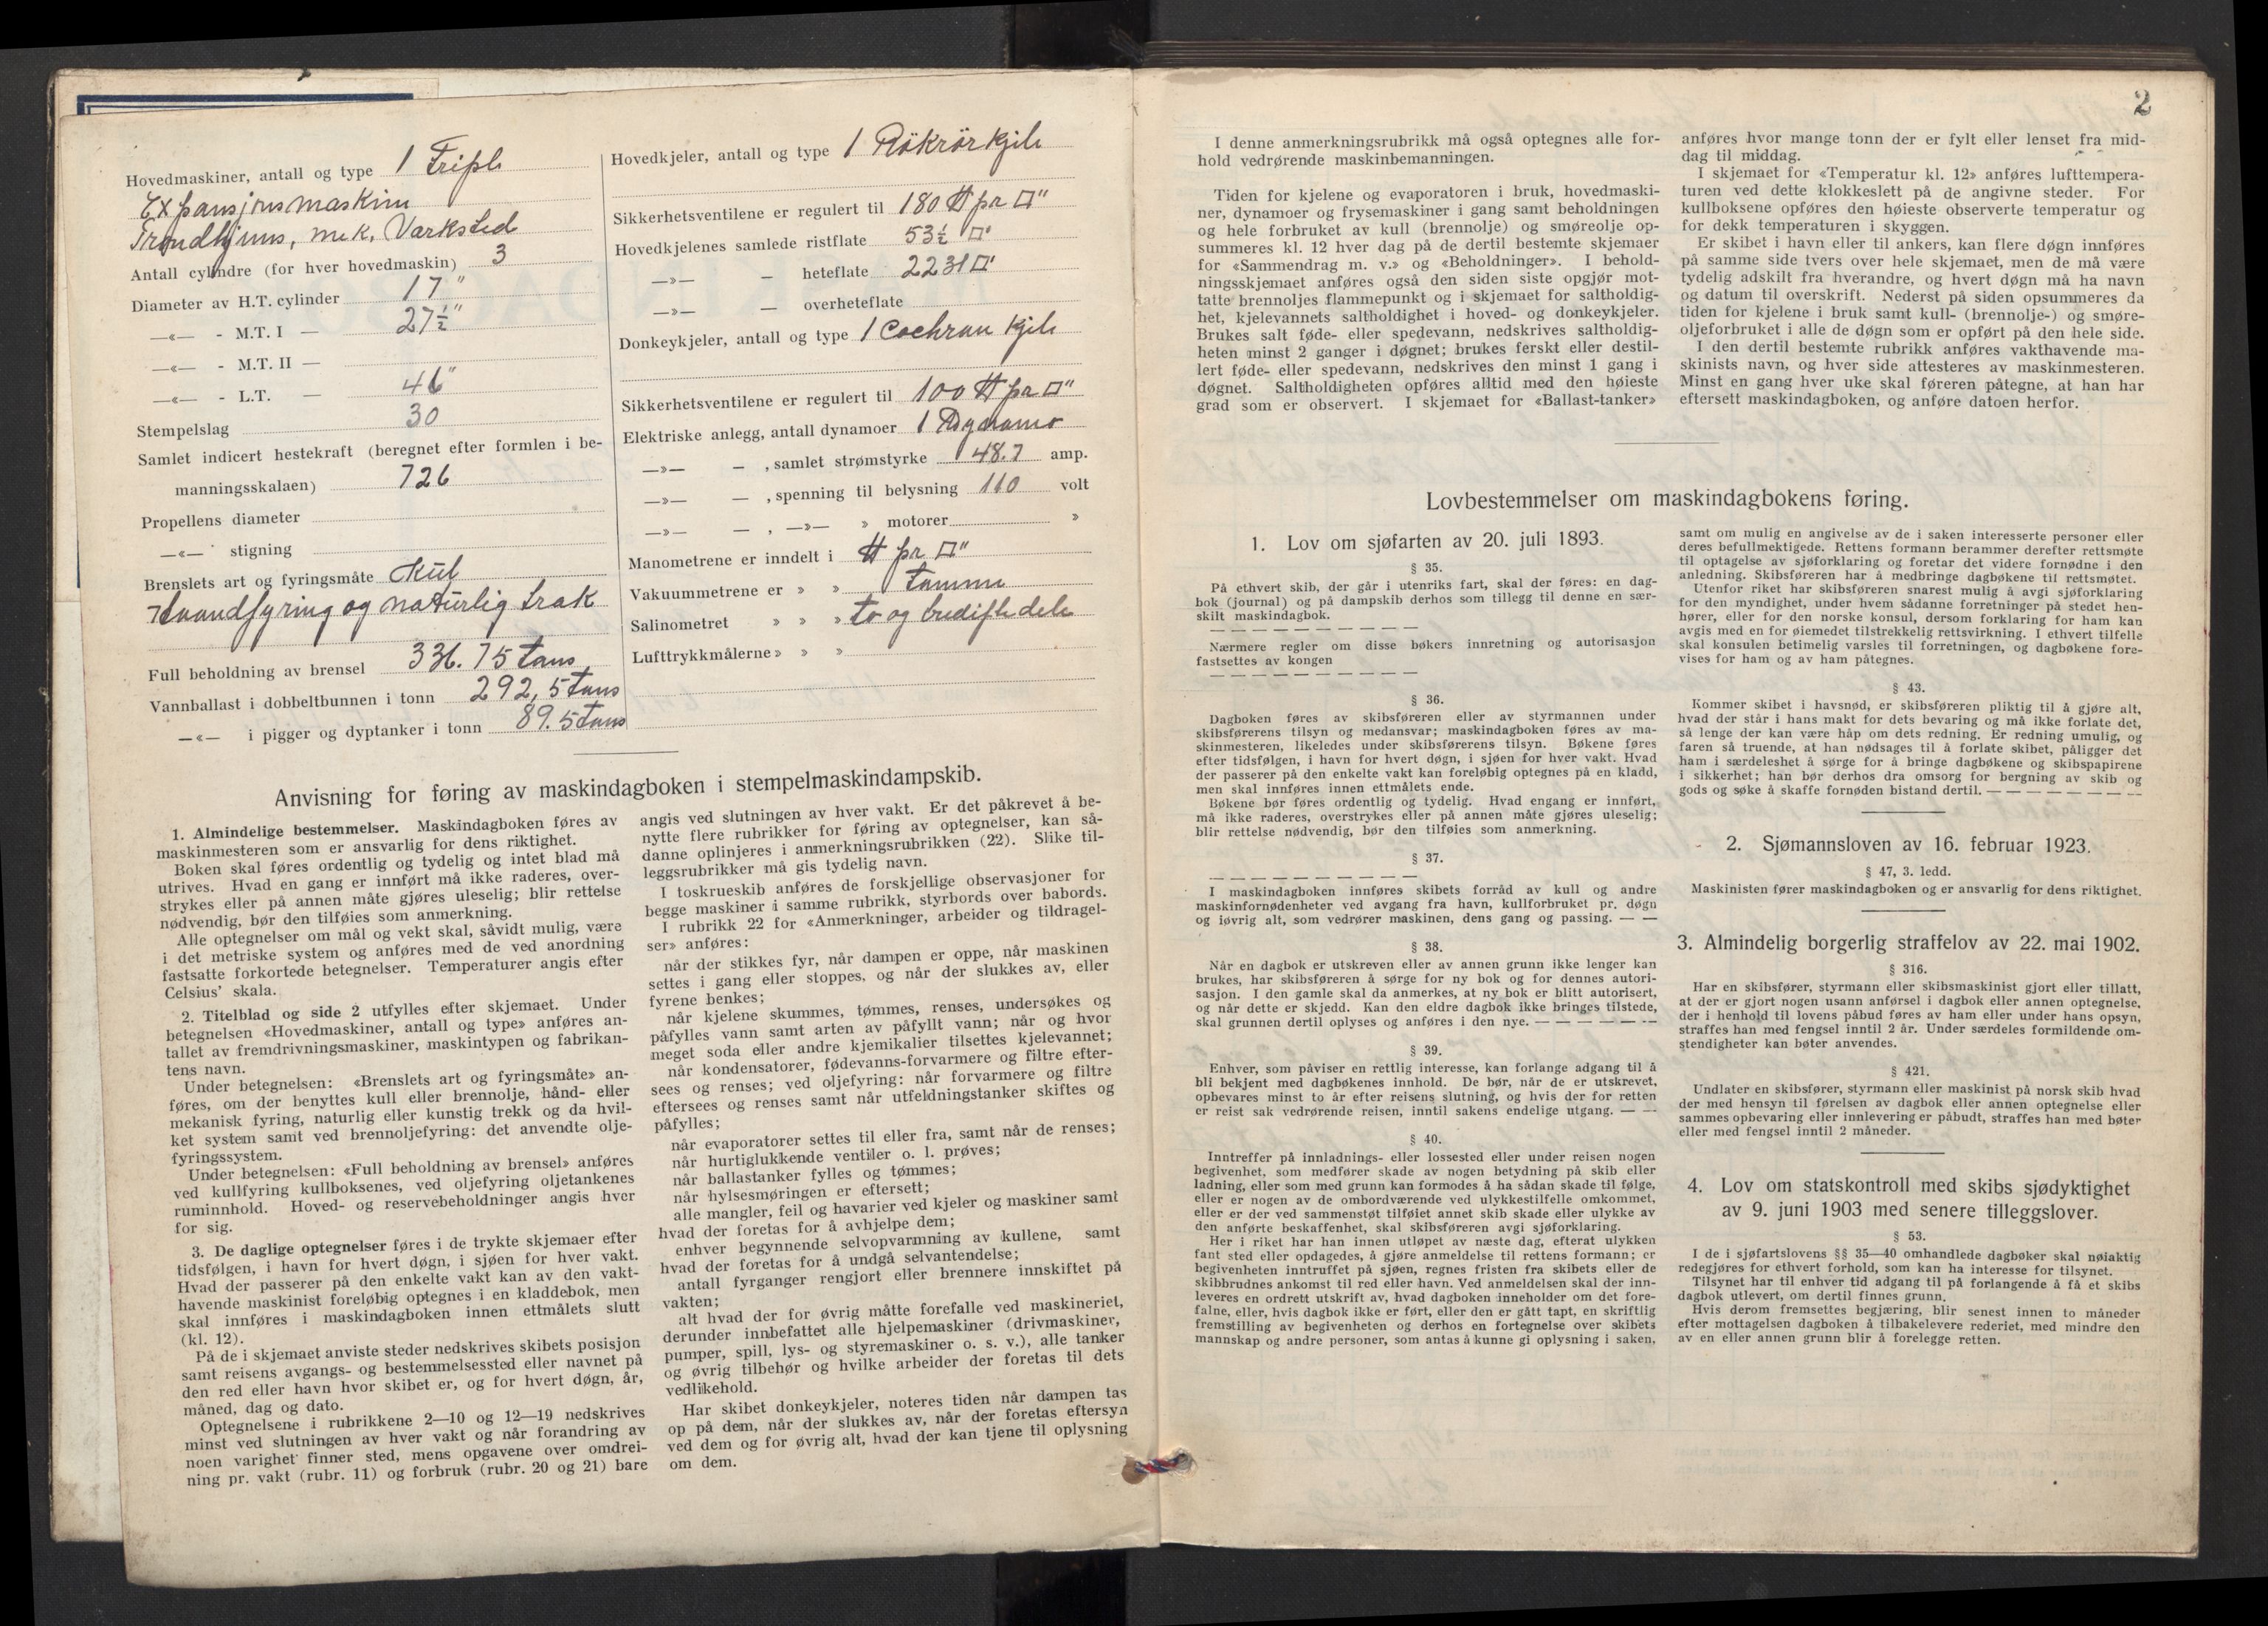 Hovedmaskiner, antall og type 1 Triple
Expansjonsmaskin
Trondhjems, mek, Værksted
Antall cylindre (for hver hovedmaskin) 3
Diameter av H.T. cylinder 17"
—«— - M.T. I — 27½"
—«— - M.T. II —
—«— - L.T. — 46"
Stempelslag 30
Samlet indicert hestekraft (beregnet efter formlen i be-
manningsskalaen) 726
Propellens diameter
—«— stigning
Brenslets art og fyringsmåte Kul
Haandfyring og naturlig træk
Full beholdning av brensel 336.75 tons
Vannballast i dobbeltbunnen i tonn 292,5 tons
—«— i pigger og dyptanker i tonn 89.5 tons
Hovedkjeler, antall og type 1 Rökrörkjele
Sikkerhetsventilene er regulert til 180 ℔ pr □"
Hovedkjelenes samlede ristflate 53½ □'
—»— — heteflate 2231 □'
—»— — overheteflate
Donkeykjeler, antall og type 1 Cochran kjele
Sikkerhetsventilene er regulert til 100 ℔ pr □"
Elektriske anlegg, antall dynamoer 1 Dynamo
—»— — , samlet strømstyrke 48.7 amp.
—»— — , spenning til belysning 110 volt
—»— — , —»— » motorer »
Manometrene er inndelt i ℔ pr □"
Vakuummetrene er » » tomme
Salinometret » » » to og tredifledele
Lufttrykkmålerne » » »
Anvisning for føring av maskindagboken i stempelmaskindampskib.
1. Almindelige bestemmelser. Maskindagboken føres av
maskinmesteren som er ansvarlig for dens riktighet.
Boken skal føres ordentlig og tydelig og intet blad må
utrives. Hvad en gang er innført må ikke raderes, over-
strykes eller på annen måte gjøres uleselig; blir rettelse
nødvendig, bør den tilføies som anmerkning.
Alle optegnelser om mål og vekt skal, såvidt mulig, være
i det metriske system og anføres med de ved anordning
fastsatte forkortede betegnelser. Temperaturer angis efter
Celsius' skala.
2. Titelblad og side 2 utfylles efter skjemaet. Under
betegnelsen «Hovedmaskiner, antall og type» anføres an-
tallet av fremdrivningsmaskiner, maskintypen og fabrikan-
tens navn.
Under betegnelsen: «Brenslets art og fyringsmåte» an-
føres, om der benyttes kull eller brennolje, hånd- eller
mekanisk fyring, naturlig eller kunstig trekk og da hvil-
ket system samt ved brennoljefyring: det anvendte olje-
fyringssystem.
Under betegnelsen: «Full beholdning av brensel» anføres
ved kullfyring kullboksenes, ved oljefyring oljetankenes
ruminnhold. Hoved- og reservebeholdninger angis hver
for sig.
3. De daglige optegnelser føres i de trykte skjemaer efter
tidsfølgen, i havn for hvert døgn, i sjøen for hver vakt.
Hvad der passerer på den enkelte vakt kan av den vakt-
havende maskinist foreløbig optegnes i en kladdebok, men
skal innføres i maskindagboken innen ettmålets slutt
(kl. 12).
På de i skjemaet anviste steder nedskrives skibets posisjon
samt reisens avgangs- og bestemmelsessted eller navnet på
den red eller havn hvor skibet er, og for hvert døgn, år,
måned, dag og dato.
Optegnelsene i rubrikkene 2—10 og 12—19 nedskrives
minst ved slutningen av hver vakt og når forandring av
noen varighet finner sted, mens opgavene over omdrei-
ning pr. vakt (rubr. 11) og forbruk (rubr. 20 og 21) bare
angis ved slutningen av hver vakt. Er det påkrevet å be-
nytte flere rubrikker for føring av optegnelser, kan så-
danne oplinjeres i anmerkningsrubrikken (22). Slike til-
leggsrubrikker må gis tydelig navn.
I toskrueskib anføres de forskjellige observasjoner for
begge maskiner i samme rubrikk, styrbords over babords.
I rubrikk 22 for «Anmerkninger, arbeider og tildragel-
ser» anføres:
når der stikkes fyr, når dampen er oppe, når maskinen
settes i gang eller stoppes, og når der slukkes av, eller
fyrene benkes;
når kjelene skummes, tømmes, renses, undersøkes og
påfylles vann samt arten av påfyllt vann; når og hvor
meget soda eller andre kjemikalier tilsettes kjelevannet;
når kondensatorer, fødevanns-forvarmere og filtre efter-
sees og renses; ved oljefyring: når forvarmere og filtre
eftersees og renses samt når utfeldningstanker skiftes og
påfylles;
når evaporatorer settes til eller fra, samt når de renses;
når hurtiglukkende ventiler o. l. prøves;
når ballastanker fylles og tømmes;
når hylsesmøringen er eftersett;
alle mangler, feil og havarier ved kjeler og maskiner samt
hvad der foretas for å avhjelpe dem;
enhver begynnende selvopvarmning av kullene, samt
hvad der foretas for å undgå selvantendelse;
antall fyrganger rengjort eller brennere innskiftet på
vakten;
alt hvad der for øvrig måtte forefalle ved maskineriet,
derunder innbefattet alle hjelpemaskiner (drivmaskiner,
pumper, spill, lys- og styremaskiner o. s. v.), alle tanker
og øvrig tilbehør og hvilke arbeider der foretas til dets
vedlikehold.
Har skibet donkeykjeler, noteres tiden når dampen tas
op på dem, når der slukkes av, når der foretas eftersyn
ved dem og for øvrig alt, hvad der kan tjene til oplysning
om dem.
2
I denne anmerkningsrubrikk må også optegnes alle for-
hold vedrørende maskinbemanningen.
Tiden for kjelene og evaporatoren i bruk, hovedmaski-
ner, dynamoer og frysemaskiner i gang samt beholdningen
og hele forbruket av kull (brennolje) og smøreolje op-
summeres kl. 12 hver dag på de dertil bestemte skjemaer
for «Sammendrag m. v.» og «Beholdninger». I behold-
ningsskjemaet anføres også den siden siste opgjør mot-
tatte brennoljes flammepunkt og i skjemaet for saltholdig-
het, kjelevannets saltholdighet i hoved- og donkeykjeler.
Brukes salt føde- eller spedevann, nedskrives saltholdig-
heten minst 2 ganger i døgnet; brukes ferskt eller destil-
lert føde- eller spedevann, nedskrives den minst 1 gang i
døgnet. Saltholdigheten opføres alltid med den høieste
grad som er observert. I skjemaet for «Ballast-tanker»
anføres hvor mange tonn der er fylt eller lenset fra mid-
dag til middag.
I skjemaet for «Temperatur kl. 12» anføres lufttempera-
turen ved dette klokkeslett på de angivne steder. For
kullboksene opføres den høieste observerte temperatur og
for dekk temperaturen i skyggen.
Er skibet i havn eller til ankers, kan flere døgn innføres
på samme side tvers over hele skjemaet, men de må være
tydelig adskilt fra hverandre, og hvert døgn må ha navn
og datum til overskrift. Nederst på siden opsummeres da
tiden for kjelene i bruk samt kull- (brennolje-) og smøre-
oljeforbruket i alle de døgn som er opført på den hele side.
I den dertil bestemte rubrikk anføres vakthavende ma-
skinists navn, og hver side attesteres av maskinmesteren.
Minst en gang hver uke skal føreren påtegne, at han har
eftersett maskindagboken, og anføre datoen herfor.
Lovbestemmelser om maskindagbokens føring.
1. Lov om sjøfarten av 20. juli 1893.
§ 35.
På ethvert skib, der går i utenriks fart, skal der føres: en dag-
bok (journal) og på dampskib derhos som tillegg til denne en sær-
skilt maskindagbok.
— — — — — — — — — —
Nærmere regler om disse bøkers innretning og autorisasjon
fastsettes av kongen
— — — — — — — — — —
§ 36.
Dagboken føres av skibsføreren eller av styrmannen under
skibsførerens tilsyn og medansvar; maskindagboken føres av ma-
skinmesteren, likeledes under skibsførerens tilsyn. Bøkene føres
efter tidsfølgen, i havn for hvert døgn, i sjøen for hver vakt. Hvad
der passerer på den enkelte vakt kan foreløbig optegnes på en kladd,
men skal innføres innen ettmålets ende.
Bøkene bør føres ordentlig og tydelig. Hvad engang er innført,
må ikke raderes, overstrykes eller på annen måte gjøres uleselig;
blir rettelse nødvendig, bør den tilføies som anmerkning.
§ 37.
— — — — — — — — — —
I maskindagboken innføres skibets forråd av kull og andre
maskinfornødenheter ved avgang fra havn, kullforbruket pr. døgn
og iøvrig alt, som vedrører maskinen, dens gang og passing. — —
§ 38.
Når en dagbok er utskreven eller av annen grunn ikke lenger kan
brukes, har skibsføreren å sørge for ny bok og for dennes autori-
sasjon. I den gamle skal da anmerkes, at ny bok er blitt autorisert,
og når dette er skjedd. Kan den eldre dagbok ikke bringes tilstede,
skal grunnen dertil oplyses og anføres i den nye. — — — — — — —
§ 39.
Enhver, som påviser en rettlig interesse, kan forlange adgang til å
bli bekjent med dagbøkenes innhold. De bør, når de er utskrevet,
opbevares minst to år efter reisens slutning, og hvis der for retten
er reist sak vedrørende reisen, inntil sakens endelige utgang. — —
§ 40.
Inntreffer på innladnings- eller lossested eller under reisen nogen
begivenhet, som medfører skade av nogen betydning på skib eller
ladning, eller som med grunn kan formodes å ha sådan skade til følge,
eller er nogen av de ombordværende ved ulykkestilfelle omkommet,
eller er der ved sammenstøt tilføiet annet skib skade eller ulykke av
den anførte beskaffenhet, skal skibsføreren avgi sjøforklaring.
Her i riket har han innen utløpet av næste dag, efterat ulykken
fant sted eller opdagedes, å gjøre anmeldelse til rettens formann; er
begivenheten inntruffet på sjøen, regnes fristen fra skibets eller de
skibbrudnes ankomst til red eller havn. Ved anmeldelsen skal der inn-
leveres en ordrett utskrift av, hvad dagboken inneholder om det fore-
falne, eller, hvis dagbok ikke er ført, eller den er gått tapt, en skriftlig
fremstilling av begivenheten og derhos en fortegnelse over skibets
mannskap og andre personer, som antas å kunne gi oplysning i saken,
samt om mulig en angivelse av de i saken interesserte personer eller
deres befullmektigede. Rettens formann berammer derefter rettsmøte
til optagelse av sjøforklaring og foretar det videre fornødne i den
anledning. Skibsføreren har å medbringe dagbøkene til rettsmøtet.
Utenfor riket har skibsføreren snarest mulig å avgi sjøforklaring
for den myndighet, under hvem sådanne forretninger på stedet hen-
hører, eller for den norske konsul, dersom forklaring for ham kan
avgis med en for øiemedet tilstrekkelig rettsvirkning. I ethvert tilfelle
skal konsulen betimelig varsles til forretningen, og dagbøkene fore-
vises for ham og av ham påtegnes.
§ 43.
Kommer skibet i havsnød, er skibsføreren pliktig til å gjøre alt,
hvad der står i hans makt for dets bevaring og må ikke forlate det,
så lenge der kan være håp om dets redning. Er redning umulig, og
faren så truende, at han nødsages til å forlate skibet, påligger det
ham i særdeleshet å sørge for å bringe dagbøkene og skibspapirene
i sikkerhet; han bør derhos dra omsorg for bergning av skib og
gods og søke å skaffe fornøden bistand dertil. — — — — — — — — —
2. Sjømannsloven av 16. februar 1923.
§ 47, 3. ledd.
Maskinisten fører maskindagboken og er ansvarlig for dens riktighet.
3. Almindelig borgerlig straffelov av 22. mai 1902.
§ 316.
Har en skibsfører, styrmann eller skibsmaskinist gjort eller tillatt,
at der er gjort nogen usann anførsel i dagbok eller annen optegnelse,
der i henhold til lovens påbud føres av ham eller under hans opsyn,
straffes han med fengsel inntil 2 år. Under særdeles formildende om-
stendigheter kan bøter anvendes.
§ 421.
Undlater en skibsfører, styrmann eller maskinist på norsk skib hvad
der med hensyn til førelsen av dagbok eller annen optegnelse eller
sammes opbevaring eller innlevering er påbudt, straffes han med bøter
eller med fengsel inntil 2 måneder.
4. Lov om statskontroll med skibs sjødyktighet
av 9. juni 1903 med senere tilleggslover.
§ 53.
I de i sjøfartslovens §§ 35—40 omhandlede dagbøker skal nøiaktig
redegjøres for ethvert forhold, som kan ha interesse for tilsynet.
Tilsynet har til enhver tid adgang til på forlangende å få et skibs
dagbok utlevert, om dertil finnes grunn.
Hvis derom fremsettes begjæring, blir senest innen to måneder
efter mottagelsen dagboken å tilbakelevere rederiet, med mindre den
av en eller annen grunn blir å forelegge retten.